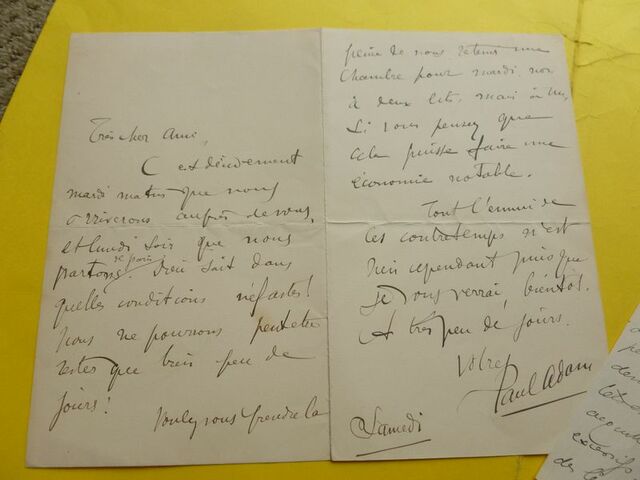 Très cher Ami,
C est décidément
mardi matin que nous
arriverons auprès de vous,
et lundi soir que nous
partons de paris. Dieu sait dans
quelles conditions néfastes!
Nous ne pourrons peutetre
rester que très peu de
jours!
Voulez vous prendre la
peine de nous retenir une
Chambre pour mardi, non
à deux lits, mais à un,
Si vous pensez que
cela puisse faire une
économie notable.
Tout l'ennui de
ces contretemps n'est
rien cependant puisque
je vous verrai, bientôt.
A très peu de jours.
Votre
Paul Adam
Samedi